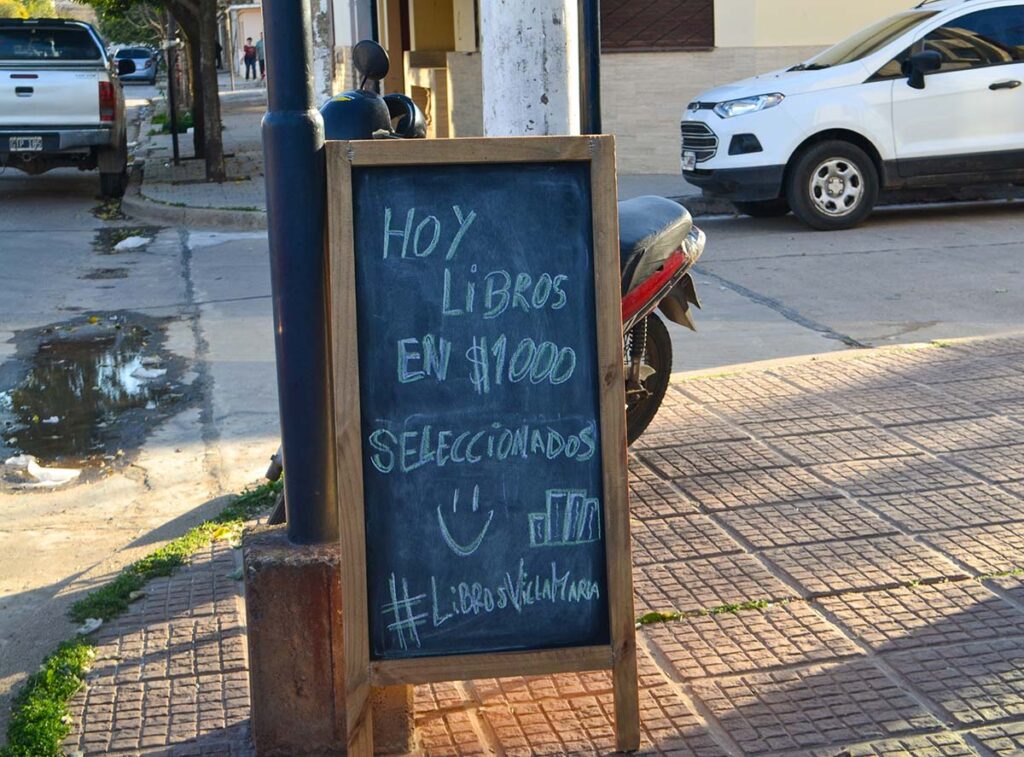 HOY
LiBROS
EN $1000
SELECCIONADOS
#LiBROSVILLAMARIA